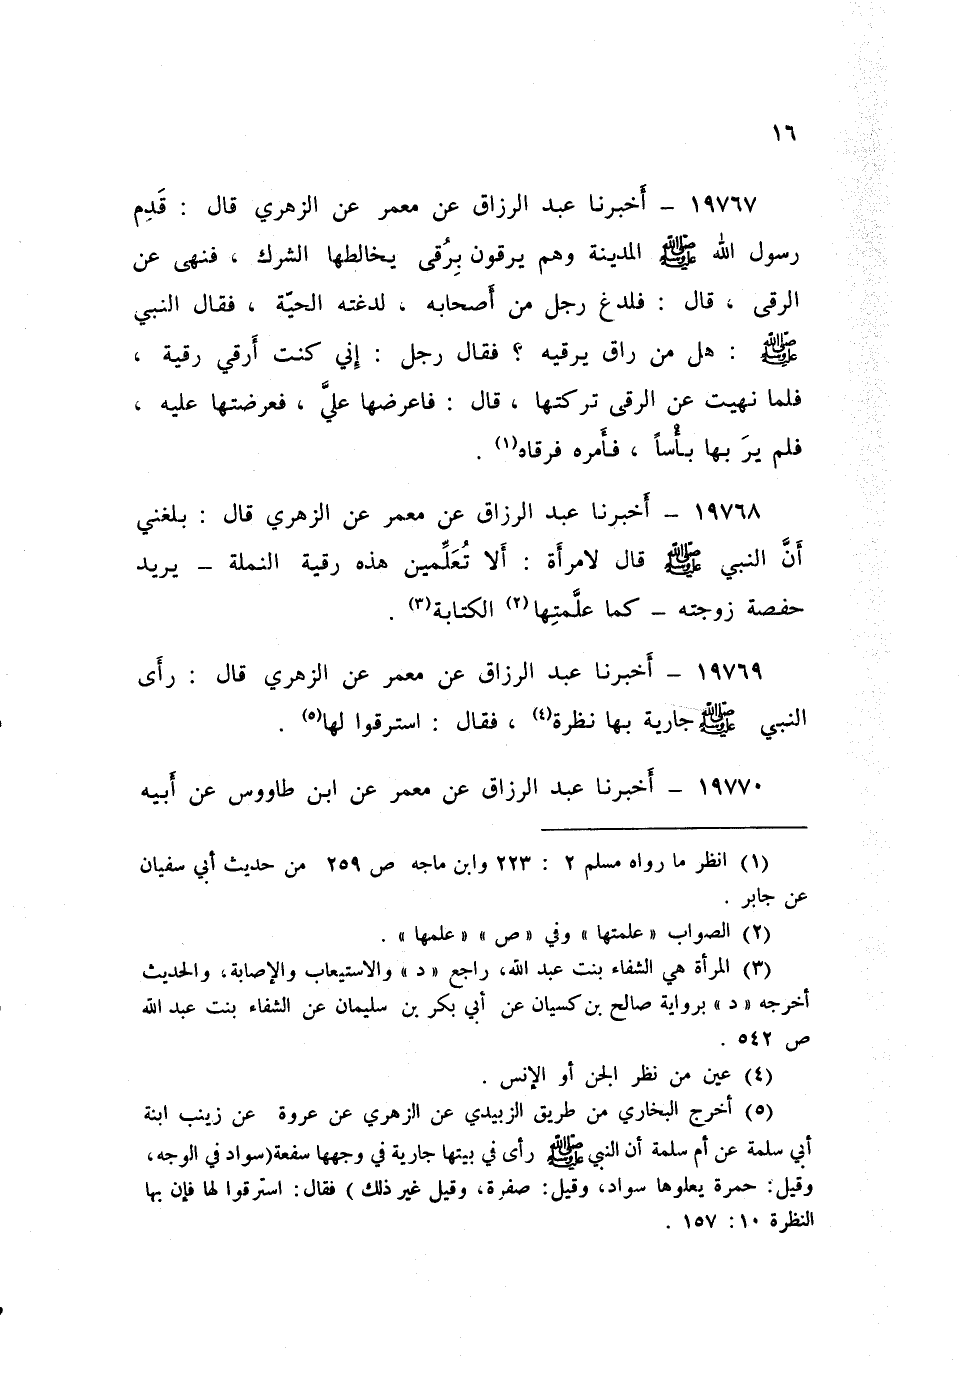 ١٦
١٩٧٦٧ ـ أَخبرنا عبد الرزاق عن معمر عن الزهري قال : قَدِم
رسول الله ﷺ المدينة وهم يرقون بِرُقى يخالطها الشرك ، فنهى عن
الرقى ، قال : فلدغ رجل من أَصحابه ، لدغته الحيّة ، فقال النبي
ﷺ : هل من راق يرقيه ؟ فقال رجل : إني كنت أَرقي رقية ،
فلما نهيت عن الرقى تركتها ، قال : فاعرضها عليَّ ، فعرضتها عليه ،
فلم يرَ بها بأْساً ، فأَمره فرقاه(١) .
١٩٧٦٨ ـ أَخبرنا عبد الرزاق عن معمر عن الزهري قال : بلغني
أَنَّ النبي ﷺ قال لامرأَة : أَلا تُعَلِّمين هذه رقية النملة ـ يريد
حفصة زوجته ـ كما علَّمتِها(٢) الكتابة(٣) .
١٩٧٦٩ ـ أَخبرنا عبد الرزاق عن معمر عن الزهري قال : رأَى
النبي ﷺ جارية بها نظرة(٤) ، فقال : استرقوا لها(٥) .
١٩٧٧٠ ـ أَخبرنا عبد الرزاق عن معمر عن ابن طاووس عن أَبيه
(١) انظر ما رواه مسلم ٢ : ٢٢٣ وابن ماجه ص ٢٥٩ من حديث أبي سفيان
عن جابر .
(٢) الصواب « علمتها » وفي « ص » « علمها » .
(٣) المرأة هي الشفاء بنت عبد الله، راجع « د » والاستيعاب والإصابة، والحديث
أخرجه « د » برواية صالح بن كسيان عن أبي بكر بن سليمان عن الشفاء بنت عبد الله
ص ٥٤٢ .
(٤) عين من نظر الجن أو الإنس .
(٥) أخرج البخاري من طريق الزبيدي عن الزهري عن عروة عن زينب ابنة
أبي سلمة عن أم سلمة أن النبي ﷺ رأى في بيتها جارية في وجهها سفعة(سواد في الوجه،
وقيل: حمرة يعلوها سواد، وقيل: صفرة، وقيل غير ذلك ) فقال: استرقوا لها فإن بها
النظرة ١٠: ١٥٧ .